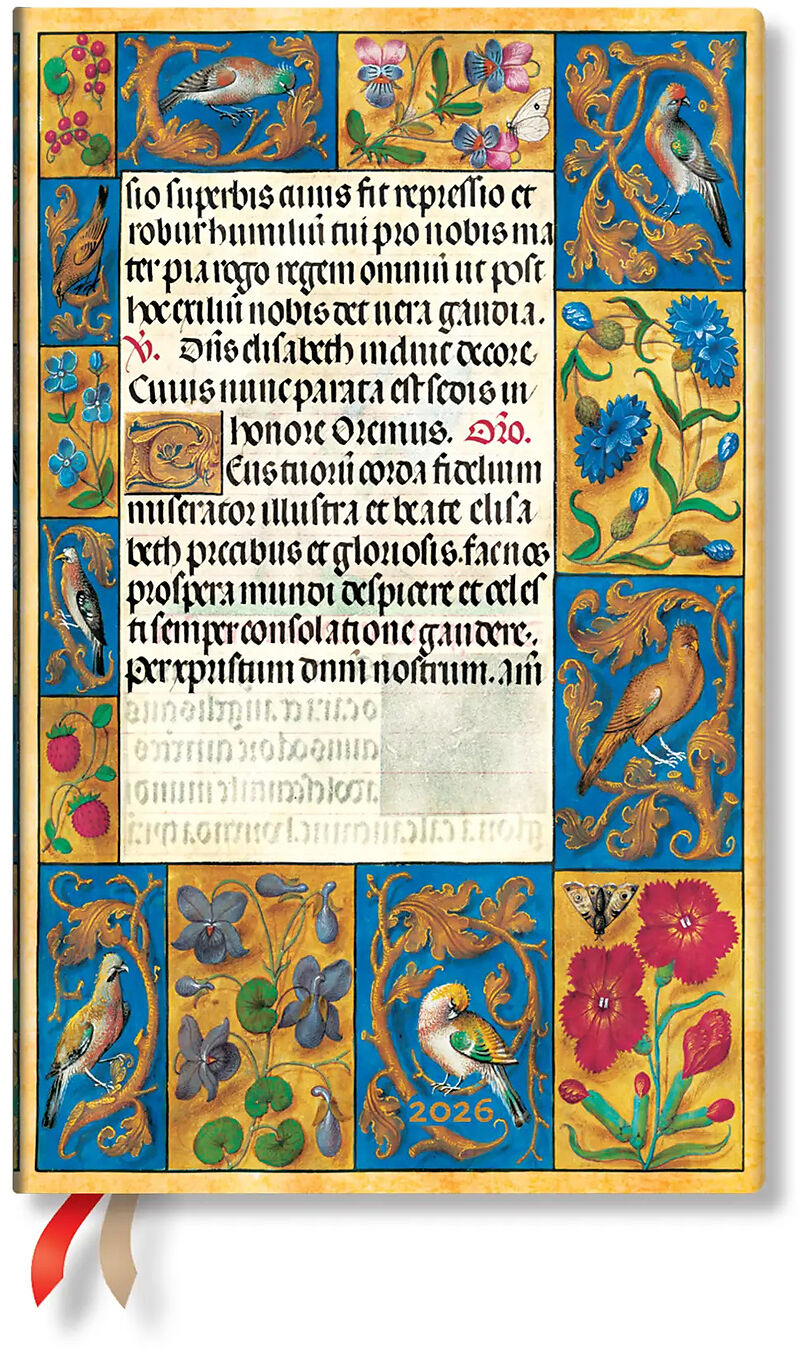 sio superbis cuius fit repressio et
robur humiliū tui pro nobis ma
ter pia rogo regem omniū ut post
hoc exiliū nobis det uera gaudia.
℣. Dn̄s elisabeth induit decore
Cuius nunc parata est sedis in
honore Oremus. Or̄o.
Deus tuorū corda fidelium
miserator illustra et beate elisa
beth precibus et gloriosis. fac nos
prospera mundi despicere et celes
ti semper consolatione gaudere.
Per xpristum dnm̄ nostrum. Am̄
2026